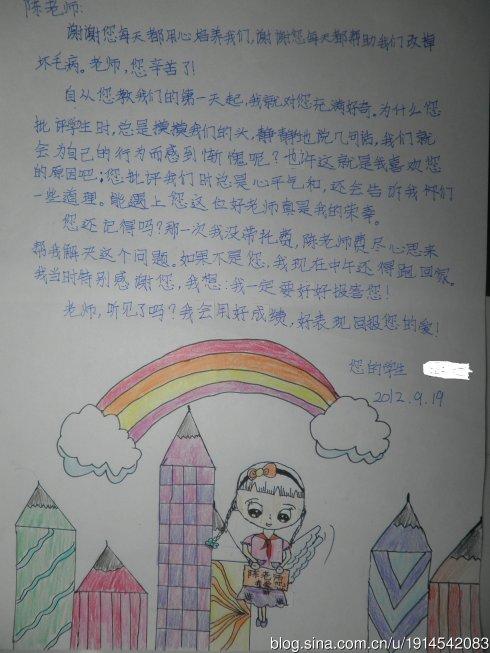 陈老师:
谢谢您每天都用心培养我们,谢谢您每天都帮助我们改掉
坏毛病。老师,您辛苦了!
自从您教我们的第一天起,我就对您充满好奇。为什么您
批评学生时,总是摸摸我们的头,静静地说几句话,我们就
会为自己的行为而感到惭愧呢?也许这就是我喜欢您
的原因吧;您批评我们时总是心平气和,还会告诉我们
一些道理。能遇上您这位好老师真是我的荣幸。
您还记得吗?那一次我没带托费,陈老师费尽心思来
帮我解决这个问题。如果不是您,我现在中午还得跑回饭。
我当时特别感谢您,我想:我一定要好好报答您!
老师,听见了吗?我会用好成绩,好表现回报您的爱!
您的学生
2012.9.19
陈老师
我爱您
blog.sina.com.cn/u/1914542083